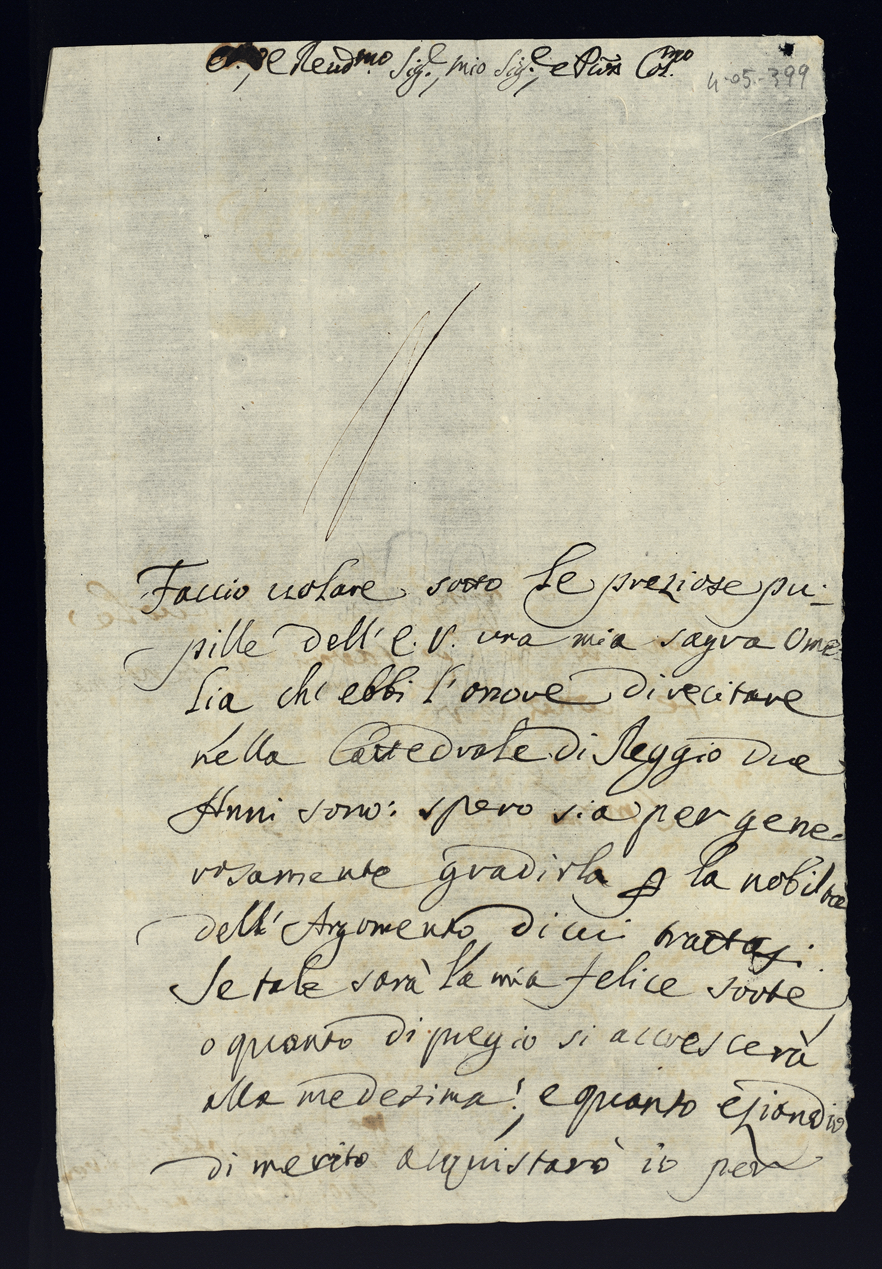 e Reud.mo Sig.e, mio Sig.e, e Col.mo
4-05-399
Faccio uolare sotto le preziose pu-
pille dell' E. V. una mia sagra Ome-
lia ch' ebbi l' onore di recitare
nella Cattedrale di Reggio due
Anni sono: spero sia per gene-
rosamente gradirla la nobiltà
dell' Argomento di cui trattasi.
Se tale sarà la mia felice sorte,
o quanto di pregio si accrescerà
alla medesima!, e quanto eziandio
di merito acquistarò io per